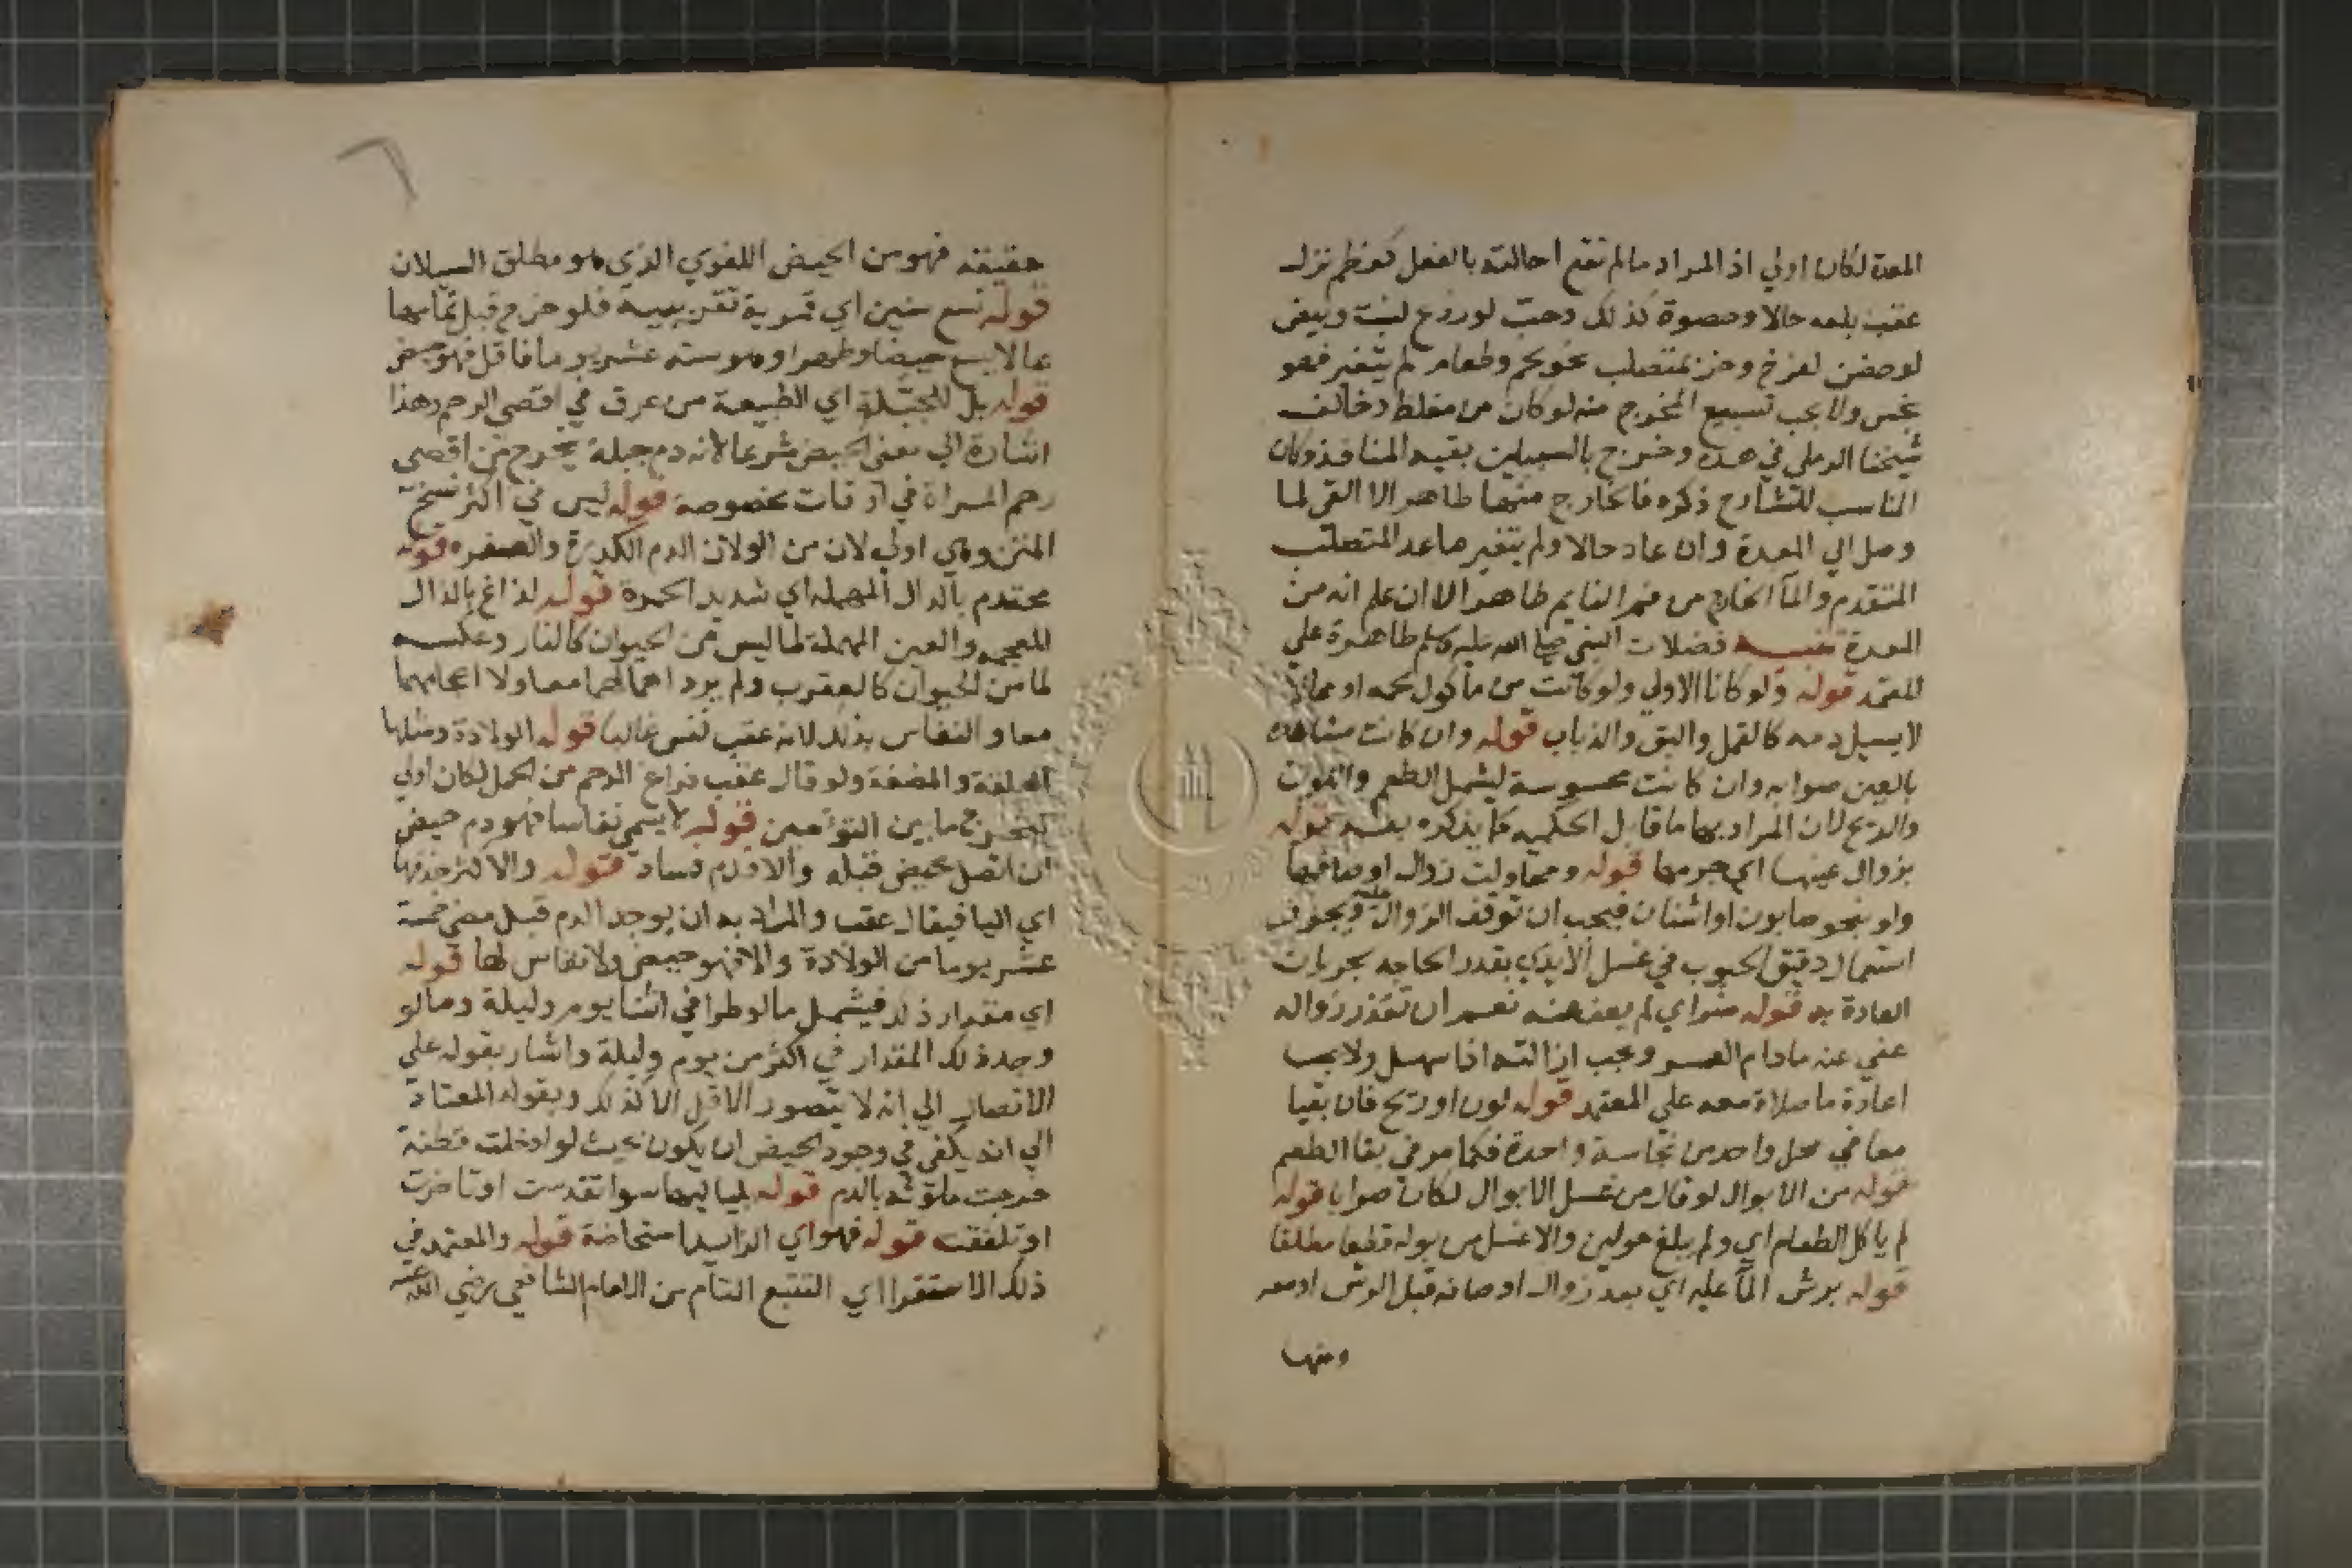 المعدة لكان اولي اذ المراد ما لم تقع احالته بالفعل كعظم نزل
عقب بلعه حالا وحصوة كذلك وحب لو زرع لنبت وبيض
لو حضن لفرخ وخرز بمتصلب نحو لحم وطعام لم يتغير فهو
نجس ولا يجب تسبيع المخرج منه لو كان من مغلظ وخالف
شيخنا الرملي في هذه وخرج بالسبيلين بقية المنافذ وكان
المناسب للشارح ذكره فالخارج منها طاهر الا القي لما
وصل الي المعدة وان عاد حالا ولم يتغير ما عدا المتصلب
المتقدم والمآ الخارج من فم النايم طاهر الا ان علم انه من
المعدة تنبيه فضلات النبي صلي الله عليه وسلم طاهرة علي
المعتمد قوله ولو كانا الاولي ولو كانت من ماكول لحمه او مما
لا يسيل دمه كالقمل والبق والذباب قوله وان كانت مشاهدة
بالعين صوابه وان كانت محسوسة ليشمل الطعم واللون
والريح لان المراد بها ما قابل الحكمية كما يذكره بعد قوله
بزوال عينها اي جرمها قوله ومحاولت زوال اوصافها
ولو بنحو صابون او اشنان فيجب ان توقف الزوال عليه ويجوز
استعمال دقيق الحبوب في غسل الايدي بقدر الحاجه بجريان
العادة به قوله ضر اي لم يعف عنه نعم ان تعذر زواله
عفي عنه مادام العسر ويجب ازالته اذا سهل ولا يجب
اعادة ما صلاة معه علي المعتمد قوله لون او ريح فان بقيا
معا في محل واحد من نجاسة واحدة فكما مر في بقا الطعم
قوله من الابوال لو قال من غسل الابوال لكان صوابا قوله
لم ياكل الطعام اي ولم يبلغ حولين والا غسل من بوله قطعا مطلقا
قوله برش المآ عليه اي بعد زوال اوصافه قبل الرش او معه
ومنها
حقيقته فهو من الحيض اللغوي الذي هو مطلق السيلان
قوله تسع سنين اي قمرية تقريبية فلو خرج قبل تمامها
بما لا يسع حيضا وطهرا وهو سته عشر يوما فاقل فهو حيض
قوله بل للجبلة اي الطبيعة من عرق في اقصي الرحم وهذا
اشارة الي معني الحيض شرعا لانه دم جبلة يخرج من اقصي
رحم المراة في اوقات مخصوصة قوله ليس في اكثر نسخ
المتن وهي اولي لان من الوان الدم الكدرة والصفره قوله
محتدم بالدال المهملة اي شديد الحمرة قوله لذاع بالذال
المعجمه والعين المهملة لما ليس من الحيوان كالنار وعكسه
لما من الحيوان كالعقرب ولم يرد اهمالهما معا ولا اعجامهما
معا والنفاس بذلك لانه عقب نفس غالبا قوله الولادة ومثلها
العلقة والمضغة ولو قال عقب فراغ الرحم من الحمل لكان اولي
ليخرج ما بين التوءمين قوله لا يسمي نفاسا فهو دم حيض
ان اتصل بحيض قبله والا فدم فساد قوله والاكثر حذفها
اي اليا فيقال عقب والمراد به ان يوجد الدم قبل مضي خمسة
عشر يوما من الولادة والا فهو حيض ولا نفاس لها قوله
اي مقدار ذلك فيشمل ما لو طرا في اثنا يوم وليلة وما لو
وجد ذلك المقدار في اكثر من يوم وليلة واشار بقوله علي
الاتصال الي انه لا يتصور الاقل الا كذلك وبقوله المعتاد
الي انه يكفي في وجود الحيض ان يكون بحيث لو ادخلت قطنة
خرجت ملوثه بالدم قوله بلياليها سوا تقدمت او تاخرت
او تلفقت قوله فهو اي الزايد استحاضة قوله والمعتمد في
ذلك الاستقرا اي التتبع التام من الامام الشافعي رضي الله عنه